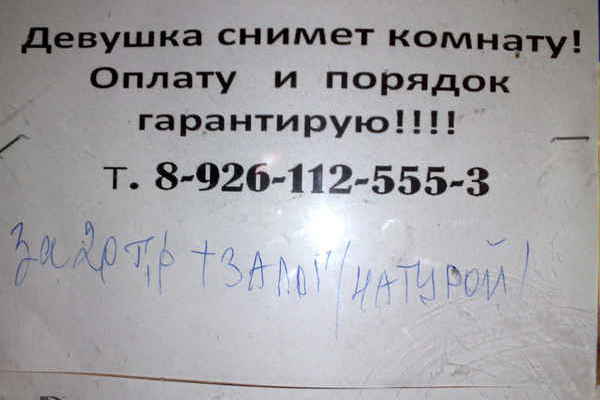 Девушка снимет комнату!
Оплату и порядок
гарантирую!!!!
т. 8-926-112-555-3
За 20 т,р + ЗАЛОГ /НАТУРОЙ/